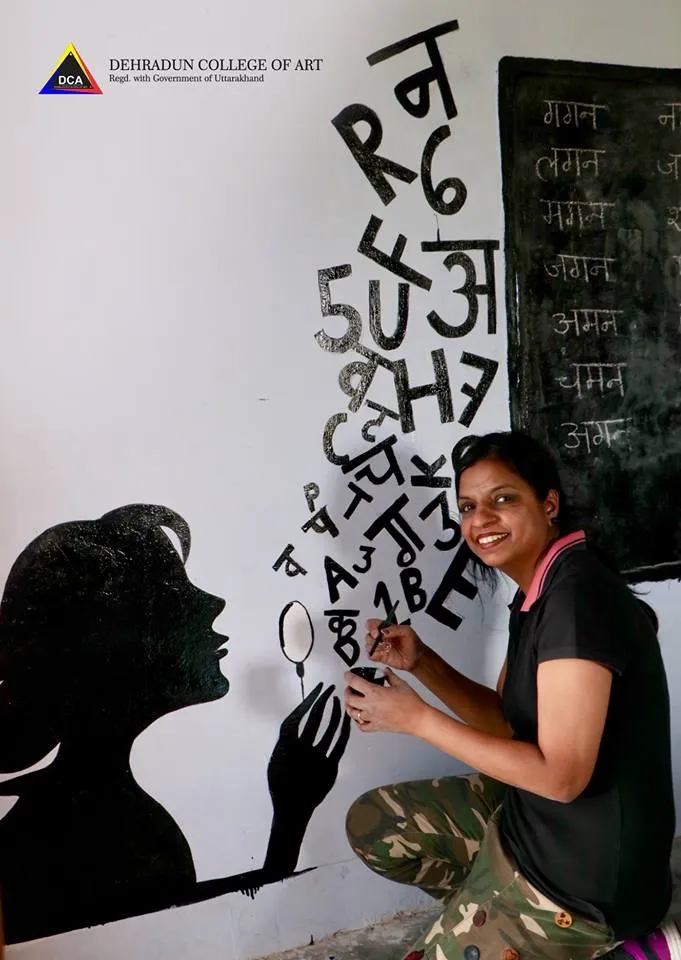 DCA
DEHRADUN COLLEGE OF ART
Regd. with Government of Uttarakhand
न
R
6
F
अ
5
U
H
C
च
K
T
P
ग
उ
A
3
B
E
क
8
गगन
लगन
मगन
जगन
अमन
चमन
अगन